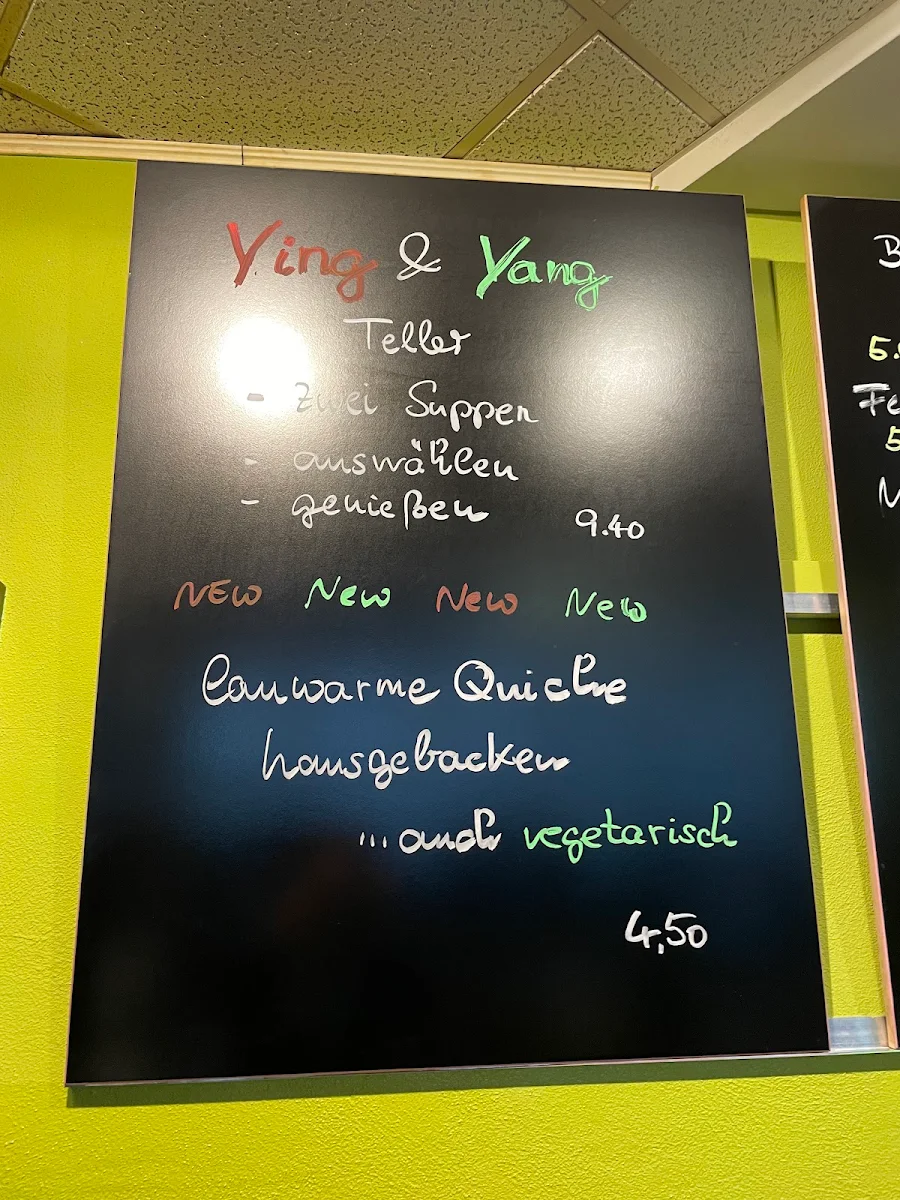 Ying & Yang
Teller
- Zwei Suppen
- auswählen
- genießen 9.40
NEW New New New
lauwarme Quiche
hausgebacken
...auch vegetarisch
4,50
B
5.
Fe
5